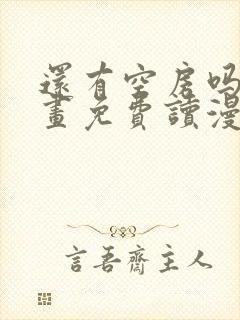 還有空房吗
畫免費讀漫
言吾齋主人